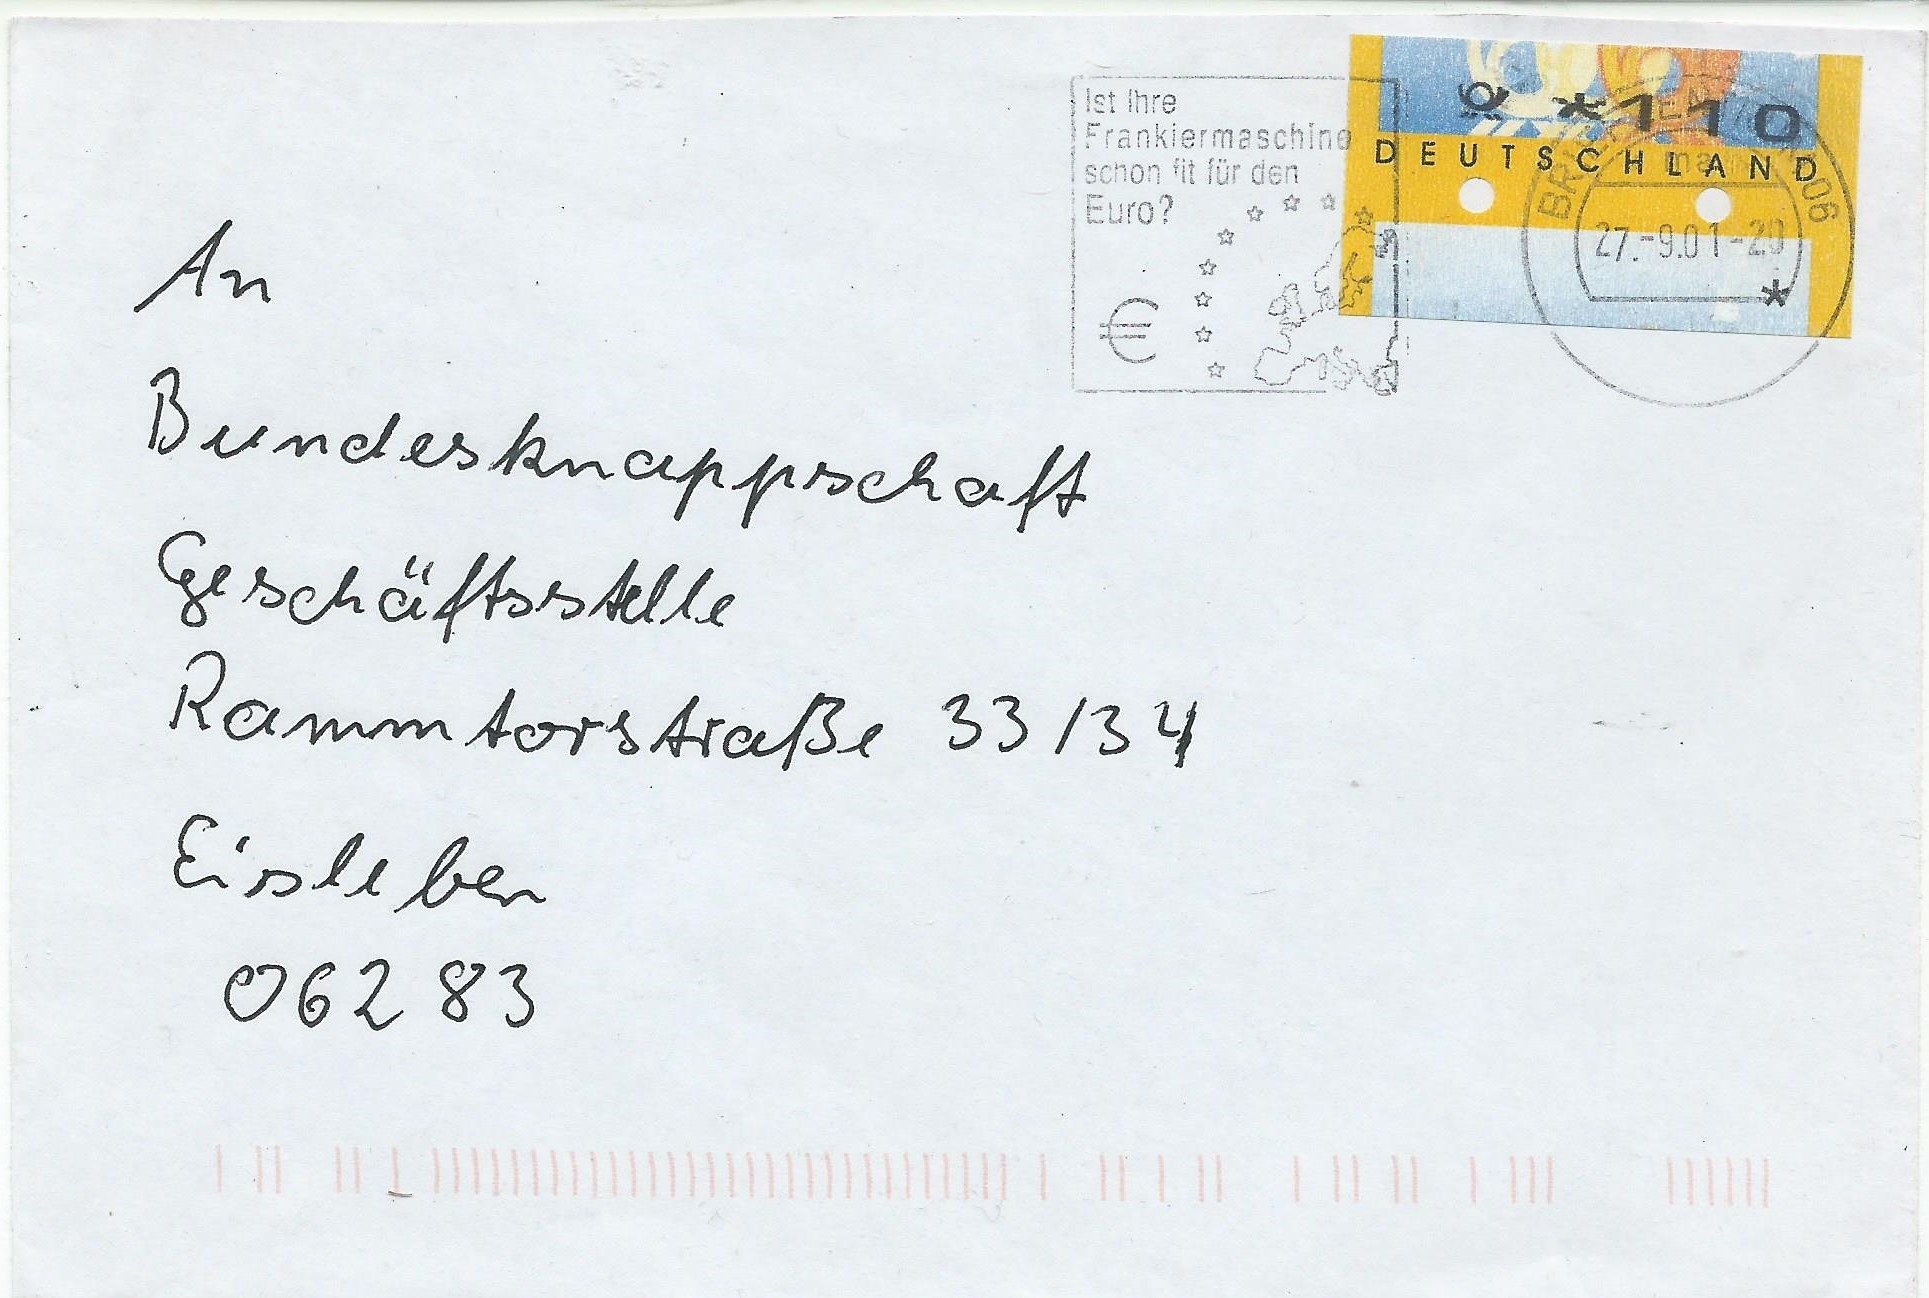 Ist Ihre
Frankiermaschine
schon fit für den
Euro?
€
*110
DEUTSCHLAND
27.-9.01-20
*
An
Bundesknappschaft
Geschäftsstelle
Rammtorstraße 33/34
Eisleben
06283